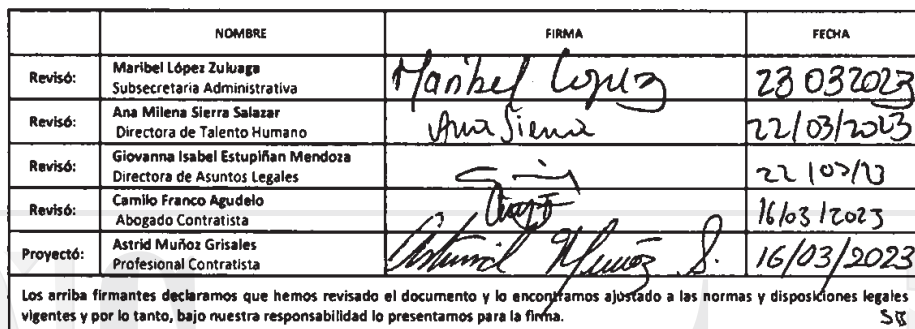 NOMBRE FIRMA FECHA
Revisó: Maribel López Zuluaga
Subsecretaria Administrativa Maribel López 23 03 2023
Revisó: Ana Milena Sierra Salazar
Directora de Talento Humano Ana Sierra 22/03/2023
Revisó: Giovanna Isabel Estupiñan Mendoza
Directora de Asuntos Legales 22/03/23
Revisó: Camilo Franco Agudelo
Abogado Contratista 16/03/2023
Proyectó: Astrid Muñoz Grisales
Profesional Contratista Astrid Muñoz G. 16/03/2023
Los arriba firmantes declaramos que hemos revisado el documento y lo encontramos ajustado a las normas y disposiciones legales
vigentes y por lo tanto, bajo nuestra responsabilidad lo presentamos para la firma.